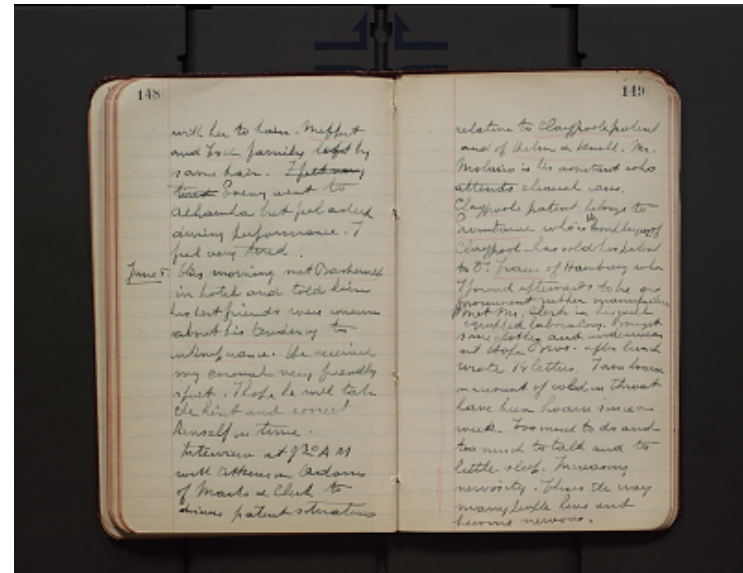 148
with her to train.
and family left by
same train. I felt very
tired Evening went to
Alhambra but feel asleep
during performance. I
feel very tired.
June 5. This morning met
in hotel and told him
his best friends were
about his tendency to
He received
my counsel very friendly
spirit. I hope he will take
the hint and correct
himself in time.
Interview at 9:30 A M
with Adams
of Marks & Clerk to
patent situation
149
relative to Claypoole patent
and of Mr.
is his assistant who
attends chemical cases.
Claypoole patent belongs to
who is employee of
Claypool - has sold his patent
to Dr. Traun of Hamburg whom
I found afterwards to be a
prominent rubber manufacturer
met Mr. Clerk in
equipped laboratory. Bought
some clothes and underwear
at Hope Bros. after lunch
wrote 14 letters. I am hoarse
on account of cold in throat
have been hoarse since a
week. Too much to do and
too much to talk and to
little sleep. Increasing
nervosity. Thus the way
many people live and
become nervous.